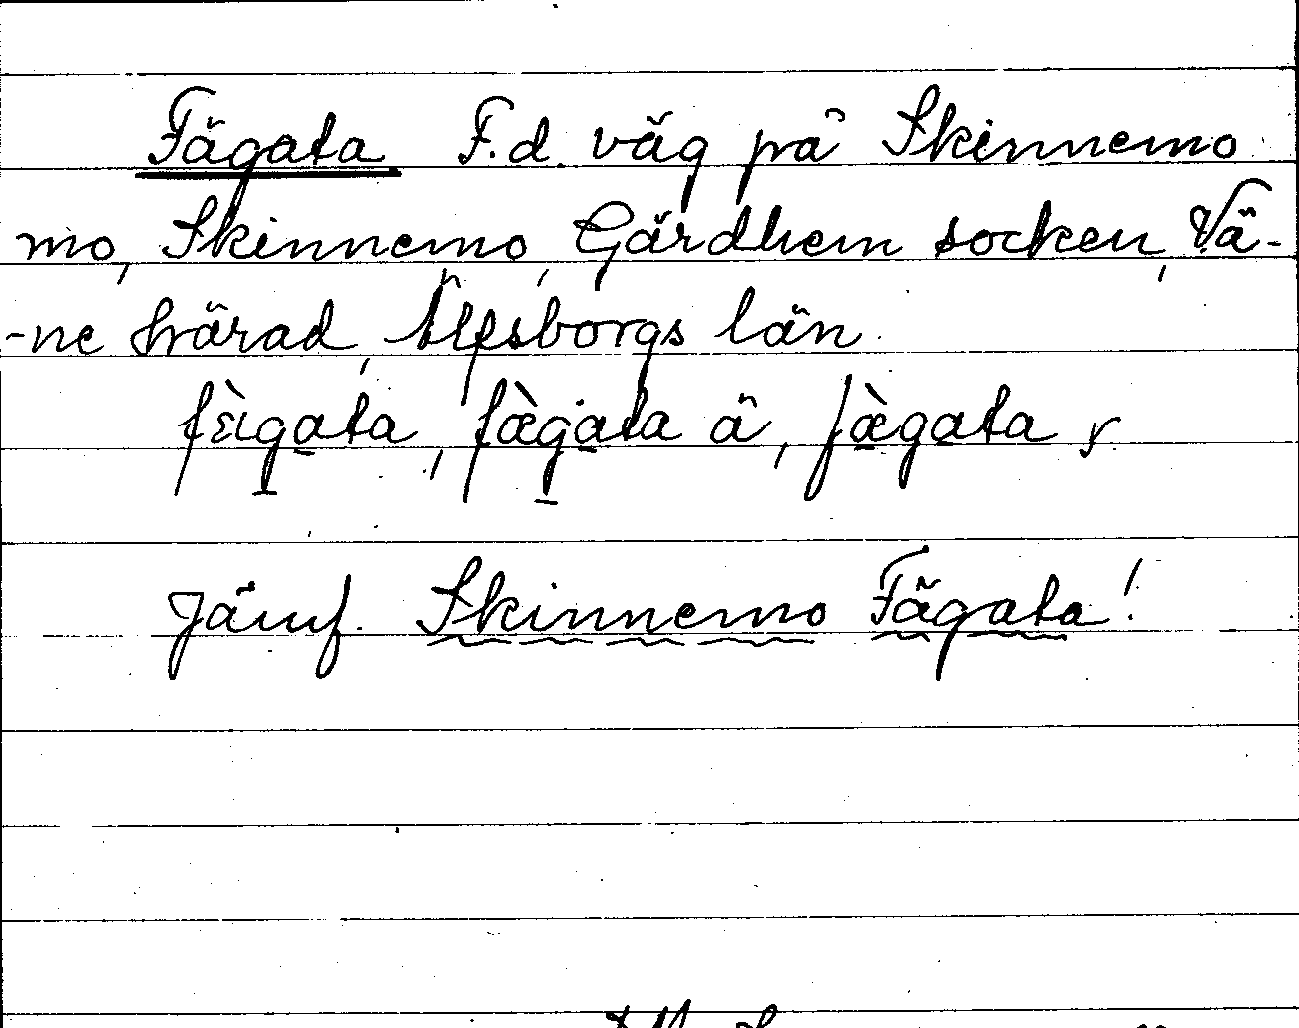 Fägata F.d. väg på Skinnemo
mo, Skinnemo, Gärdhem socken, Vä-
-ne härad, Älfsborgs län.
fæ̀gata, fæ̀gata ä, fæ̀gata r
Jämf. Skinnemo Fägata!